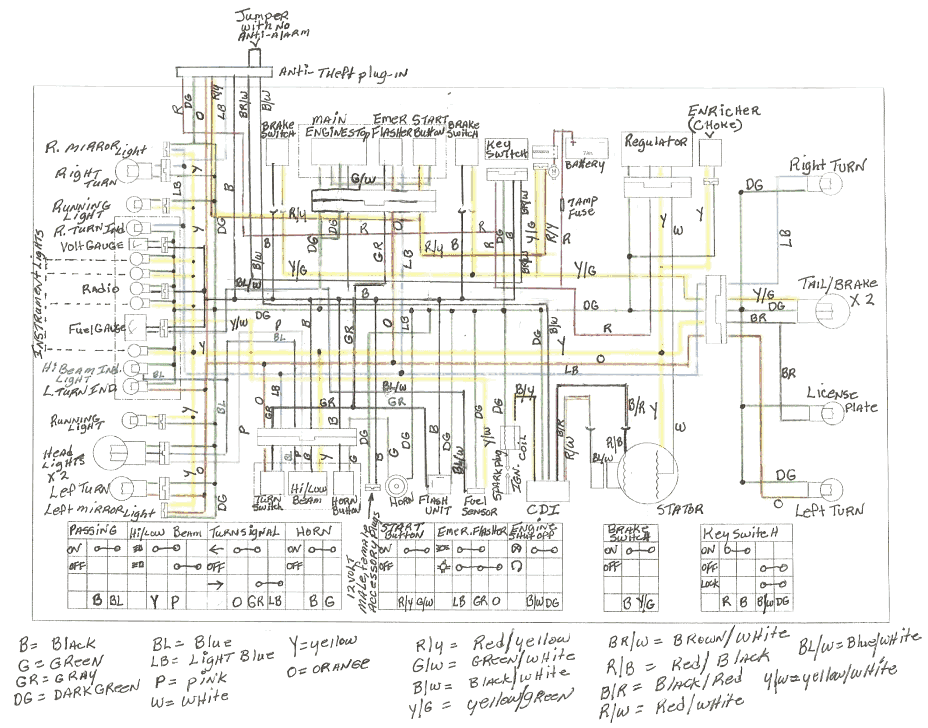 Jumper
with no
Anti-alarm
Anti-Theft plug-in
R
DG
O
R/y
LB
BR/W
B/W
ENRICHER
(CHOKE)
BRAKE
SWITCH
MAIN
ENGINE STOP
EMER
FLASHER
START
Button
BRAKE
SWITCH
Key
SWITCH
BATTERY
Regulator
7AMP
Fuse
R. MIRROR Light
Right
TURN
Running
Light
R. TURN Ind.
VOLT GAUGE
RADIO
Fuel GAUGE
Hi BEAM IND.
LIGHT
L. TURN IND.
INSTRUMENT Lights
Running
Light
HEAD
LIGHTS
X 2
Left TURN
Left mirror Light
Right TURN
TAIL/BRAKE
X 2
License
Plate
Left Turn
G/W
R/y
Y/G
Y/W
DG
LB
BR
TURN
Switch
Hi/Low
BEAM
HORN
BUTTON
HORN
FLASH
UNIT
Fuel
Sensor
SPARK plug
IGN. COIL
CDI
STATOR
12 VOLT
MALE, female
ACCESSORY Plugs
PASSING
ON
OFF
B BL
Hi/Low Beam
Y P
TURN SIGNAL
O GR LB
HORN
ON
OFF
B G
START
Button
ON
OFF
R/Y G/W
Emer. Flasher
LB GR O
ENGINE
SHUT OFF
B/W DG
BRAKE
SWITCH
ON
OFF
B Y/G
Key Switch
ON
OFF
LOCK
R B B/W DG
B = BLACK
G = GREEN
GR = GRAY
DG = DARK GREEN
BL = Blue
LB = Light Blue
P = pink
W = White
Y = yellow
O = ORANGE
R/y = Red/yellow
G/W = GREEN/White
B/W = BLACK/White
Y/G = yellow/green
BR/W = BROWN/White
R/B = Red/Black
B/R = BLACK/Red
R/W = Red/White
BL/W = Blue/White
Y/W = yellow/white